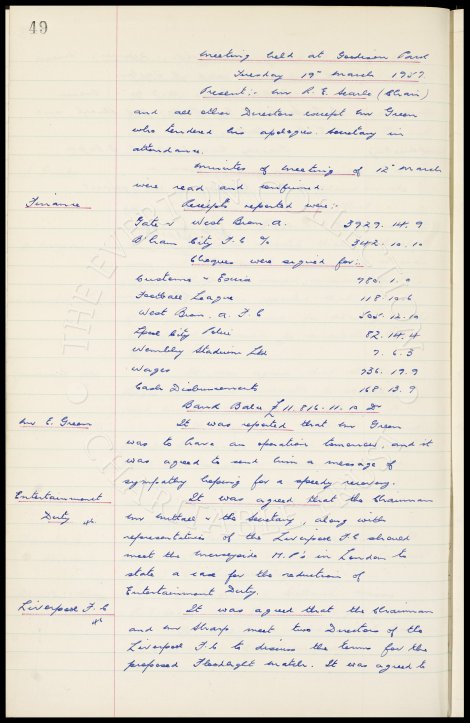 49
Meeting held at Goodison Park
Tuesday 19th March 1957.
Present:- Mr R. E. Searle (Chair)
and all other Directors except Mr Green
who tendered his apologies. Secretary in
attendance.
Minutes of meeting of 12th March
were read and confirmed.
Finance Receipts reported were:-
Gate v West Brom. A. 3929. 14. 9
B'ham City F. C. % 342. 10. 10
Cheques were signed for:-
Customs & Excise
Football League 118. 10. 6
West Brom. A. F. C 505. 12. 10
Lpool City Police 82. 14. 4
Wembley Stadium Ltd 7. 6. 3
Wages 736. 17. 9
Cash Disbursements 168. 13. 9
Bank Balce £11,816. 11. 10 Dr
Mr E. Green It was reported that Mr Green
was to have an operation tomorrow, and it
was agreed to send him a message of
sympathy hoping for a speedy recovery.
Entertainment It was agreed that the Chairman
Duty Mr Nuttall & the Secretary, along with
representatives of the Liverpool F. C should
meet the Merseyside M.P's in London to
state a case for the reduction of
Entertainment Duty.
Liverpool F. C It was agreed that the Chairman
and Mr Sharp meet two Directors of the
Liverpool F. C to discuss the terms for the
proposed Floodlight match. It was agreed to